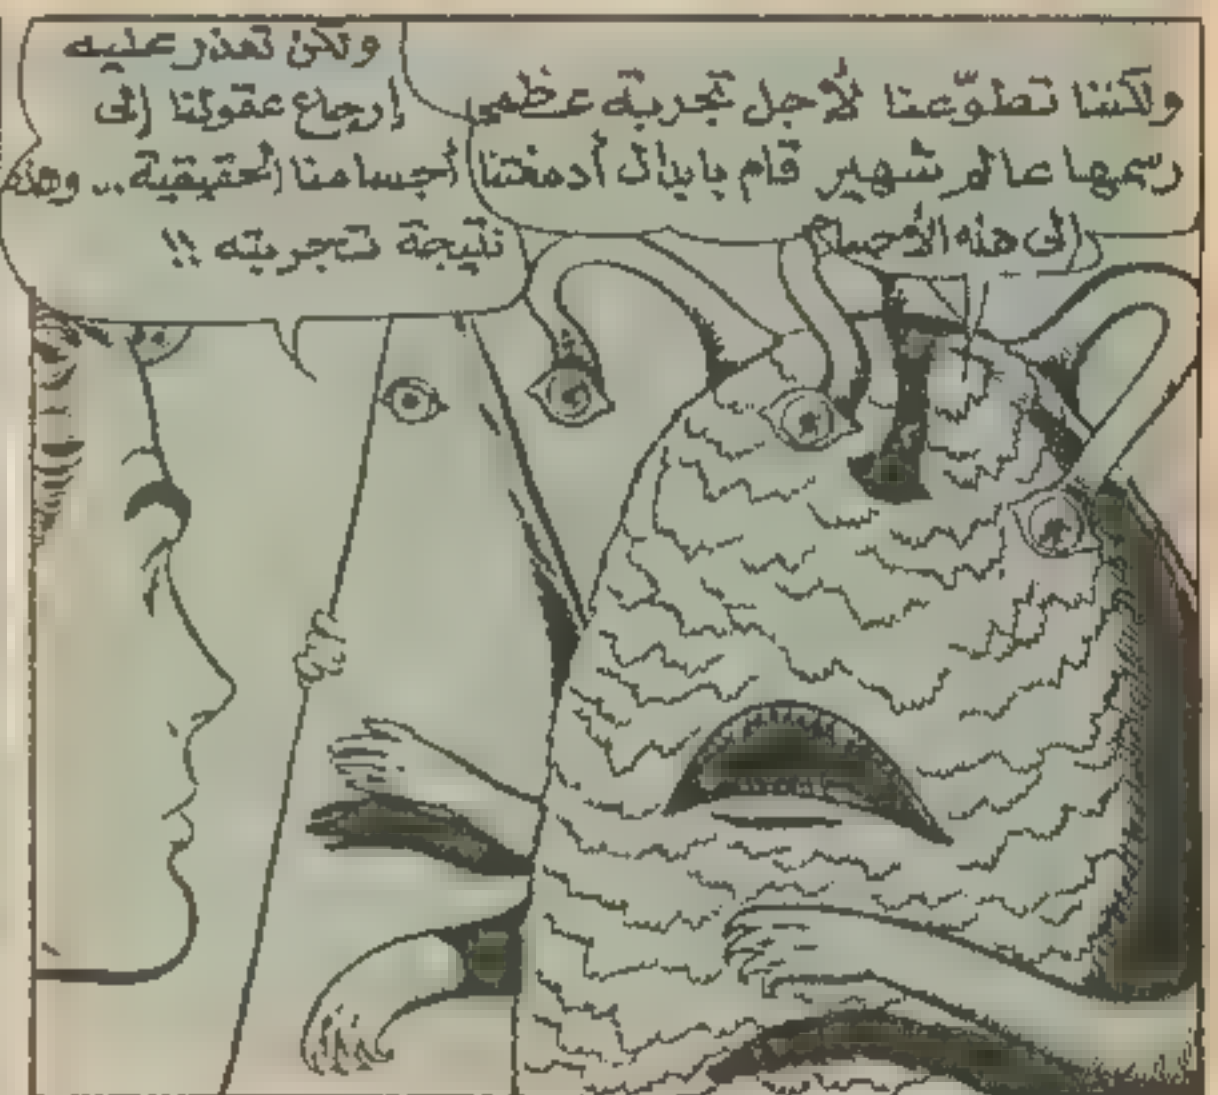 ولكننا تطوّعنا لأجل تجربة عظمى
رسمها عالم شهير قام بإبدال أدمغتنا
إلى هذه الأجسام
ولكن تعذر عليه
إرجاع عقولنا إلى
أجسامنا الحقيقية .. وهذه
نتيجة تجربته !!